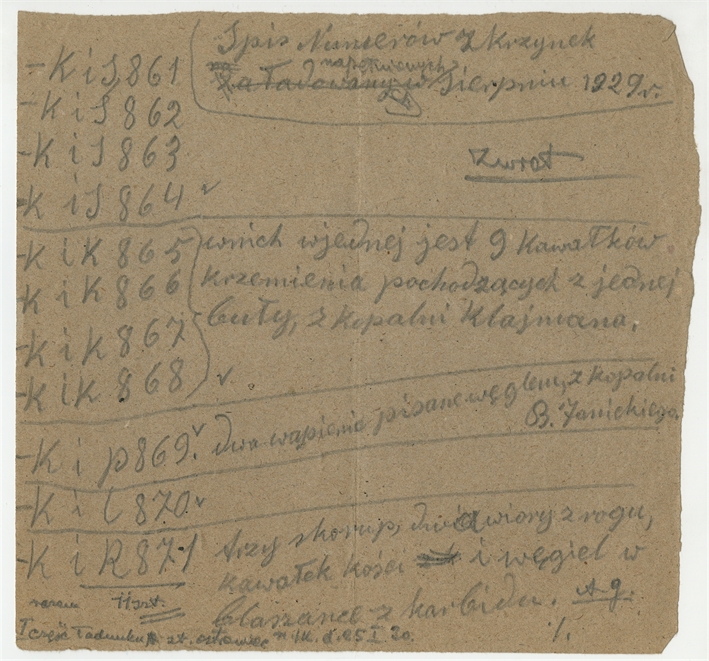 Spis Numerów z krzynek
napełnionych
załadowany w Sierpniu 1929 r.
Zwrot
- K i S 861
- K i S 862
- K i S 863
- K i S 864 v
- K i K 865
- K i K 866
- K i K 867
- K i K 868 v
wnich wjednej jest 9 kawałków
krzemienia pochodzących z jednej
buły, z kopalni Klajmana.
- K i p 869. v dwa wapienie pisane węglem, z kopalni
B. Janickiego.
- K i l 870 v
- K i R 871 trzy skorup, dwa wiory z rogu,
kawałek kości i węgiel w
blaszance z karbidu.
razem 11 szt.
I część ładunku